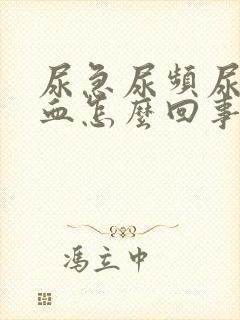 尿急尿頻尿
血怎麼回事
馮立中